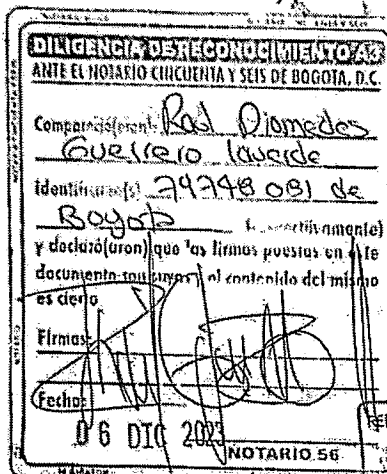 DILIGENCIA DE RECONOCIMIENTO A3
ANTE EL NOTARIO CINCUENTA Y SEIS DE BOGOTA, D.C.
Compareció(eron) Raúl Diomedes
Guerrero laverde
Identificado(s) 79748081 de
Bogota (respectivamente)
y declaró(aron) que las firmas puestas en este
documento son suyas y el contenido del mismo
es cierto
Firmas
Fecha:
06 DIC 2023
NOTARIO 56